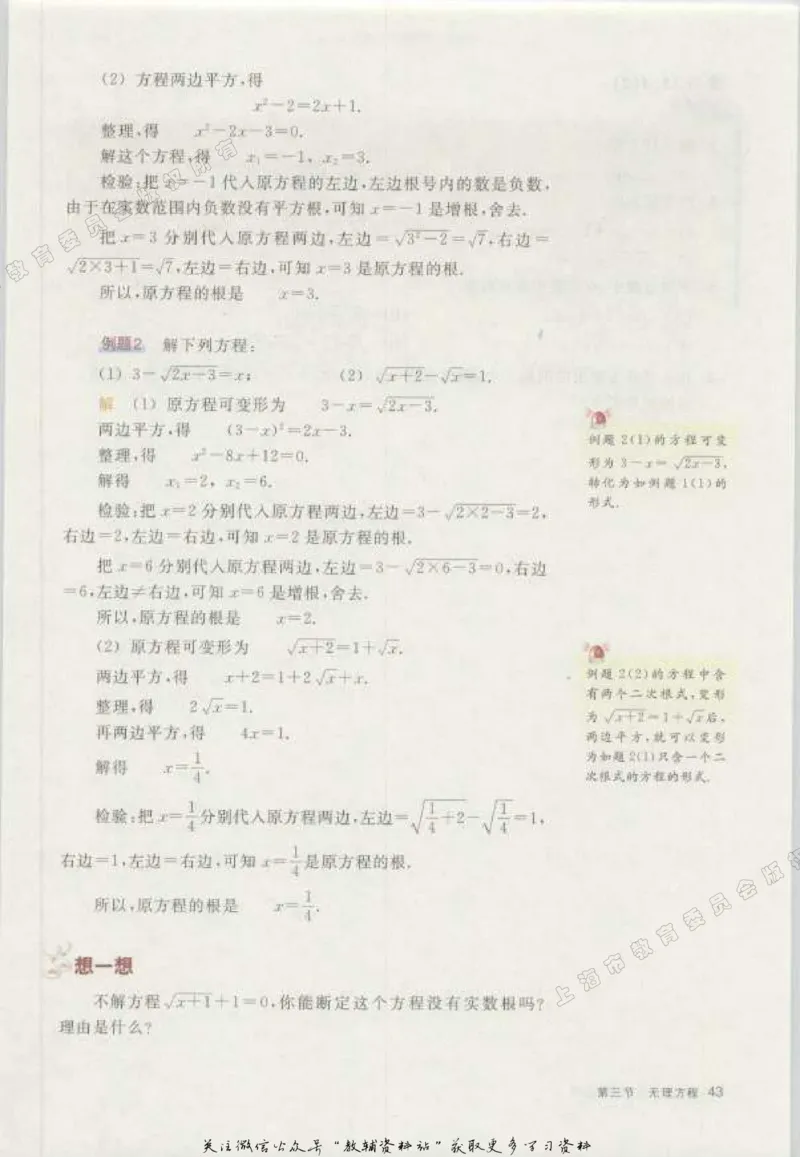 (2) 方程两边平方,得
x²-2=2x+1.
整理,得 x²-2x-3=0.
解这个方程,得 x₁=-1, x₂=3.
检验:把 x=-1 代入原方程的左边,左边根号内的数是负数,
由于在实数范围内负数没有平方根,可知 x=-1 是增根,舍去.
把 x=3 分别代入原方程两边,左边=√(3²-2)=√7,右边=
√(2×3+1)=√7,左边=右边,可知 x=3 是原方程的根.
所以,原方程的根是 x=3.
例题2 解下列方程:
(1) 3-√(2x-3)=x; (2) √(x+2)-√x=1.
解 (1) 原方程可变形为 3-x=√(2x-3).
两边平方,得 (3-x)²=2x-3.
整理,得 x²-8x+12=0.
解得 x₁=2, x₂=6.
检验:把 x=2 分别代入原方程两边,左边=3-√(2×2-3)=2,
右边=2,左边=右边,可知 x=2 是原方程的根.
把 x=6 分别代入原方程两边,左边=3-√(2×6-3)=0,右边
=6,左边≠右边,可知 x=6 是增根,舍去.
所以,原方程的根是 x=2.
(2) 原方程可变形为 √(x+2)=1+√x.
两边平方,得 x+2=1+2√x+x.
整理,得 2√x=1.
再两边平方,得 4x=1.
解得 x=1/4.
检验:把 x=1/4 分别代入原方程两边,左边=√(1/4+2)-√(1/4)=1,
右边=1,左边=右边,可知 x=1/4 是原方程的根.
所以,原方程的根是 x=1/4.
例题 2(1)的方程可变
形为 3-x=√(2x-3),
转化为如例题 1(1)的
形式.
例题 2(2)的方程中含
有两个二次根式,变形
为 √(x+2)=1+√x后,
两边平方,就可以变形
为如题 2(1)只含一个二
次根式的方程的形式.
想一想
不解方程 √(x+1)+1=0,你能断定这个方程没有实数根吗?
理由是什么?
第三节 无理方程 43
教育委员会版权所有
上海市教育委员会版权
关注微信公众号"教辅资料站"获取更多学习资料